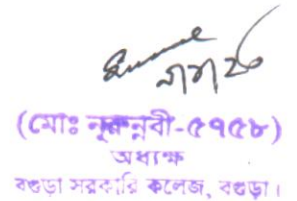 (মোঃ নূরুন্নবী-৫৭৫৮)
অধ্যক্ষ
বগুড়া সরকারি কলেজ, বগুড়া।